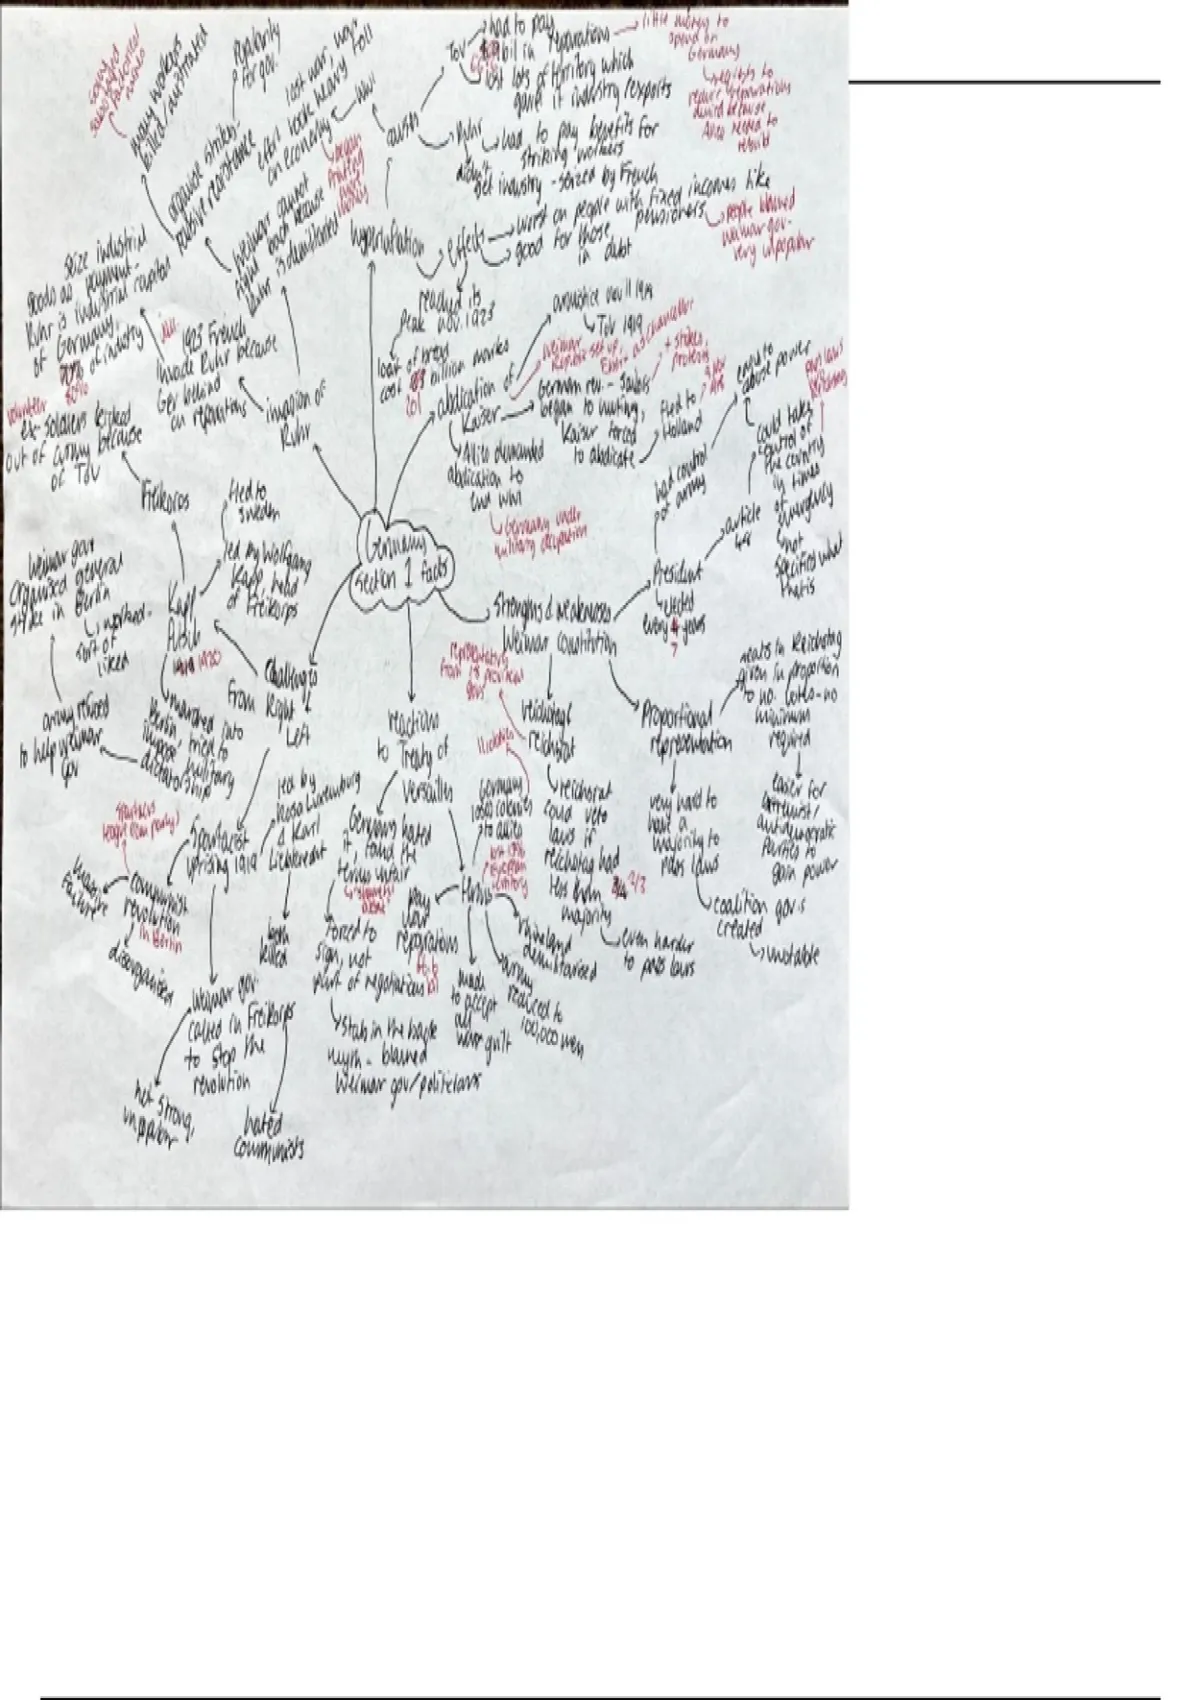 Germany
section 1 facts
causes
TOV
had to pay
bil in reparations
6.6
little money to
spend on
Germany
requests to
reduce reparations
denied because
Allies needed to
rebuild
lost lots of territory which
gave it industry/exports
Ruhr
had to pay benefits for
striking workers
didn't
get industry - seized by French
WWI
lost war, war
effort took heavy toll
on economy
began
printing
more
money
hyperinflation
effects
worst on people with fixed incomes like
pensioners
people blamed
weimar gov-
very unpopular
good for those
in debt
reached its
peak nov. 1923
loaf of bread
cost billion marks
201
abdication of
Kaiser
armistice nov 11
TOV 1919
Weimar
Republic set up,
Ebert as chancellor
German rev. - Sailors
began to mutiny,
Kaiser forced
to abdicate
+ strikes,
protests
fled to
Holland
9 Nov
Allies demanded
abdication to
end WWI
Germany under
military occupation
Strengths & weaknesses
Weimar Constitution
President
elected
every 4 years
7
had control
of army
easy to
abuse power
article
48
could take
control of
the country
in times
of
emergency
not
specified what
that is
Proportional
representation
seats in Reichstag
given in proportion
to no. votes - no
minimum
required
easier for
extremist/
antidemocratic
parties to
gain power
very hard to
have a
majority to
pass laws
coalition gov.s
created
unstable
reichstag/
reichsrat
representatives
from 18 provincial
govs
reichsrat
could veto
laws if
reichstag had
less than 3/4 2/3
majority
even harder
to pass laws
reactions
to Treaty of
Versailles
Germany hated
it, found the
terms unfair
forced to
sign, not
part of negotiations
Stab in the back
myth - blamed
Weimar gov/politicians
terms
Germany
loses colonies
to allies
11 colonies
lost 13%
European
territory
pay
reparations
bil
made
to accept
all
war guilt
army
reduced to
100,000 men
rhineland
demilitarised
Challenges
from Right
Left
Spartacist
uprising 1919
led by
Rosa Luxemburg
& Karl
Liebknecht
both
killed
communist
revolution
in Berlin
disorganised
Spartacus
league (com party)
Weimar gov.
called in Freikorps
to stop the
revolution
not strong,
unpopular
hated
communists
Kapp
Putsch
1920
led by Wolfgang
Kapp, head
of Freikorps
fled to
Sweden
marched into
Berlin, tried to
impose military
dictatorship
army refused
to help weimar
gov
Weimar gov.
organised general
strike in Berlin
worked-
sort of
liked
Freikorps
volunteer
ex-soldiers kicked
out of army because
of TOV
invasion of
Ruhr
jan.
1923 French
invade Ruhr because
Ger behind
on reparations
seize industrial
goods as payment-
Ruhr is industrial capital
of Germany,
of industry
80%
Weimar cannot
fight back because
Ruhr is demilitarised
organise strikes-
passive resistance
popularity
for gov.
many workers
killed/